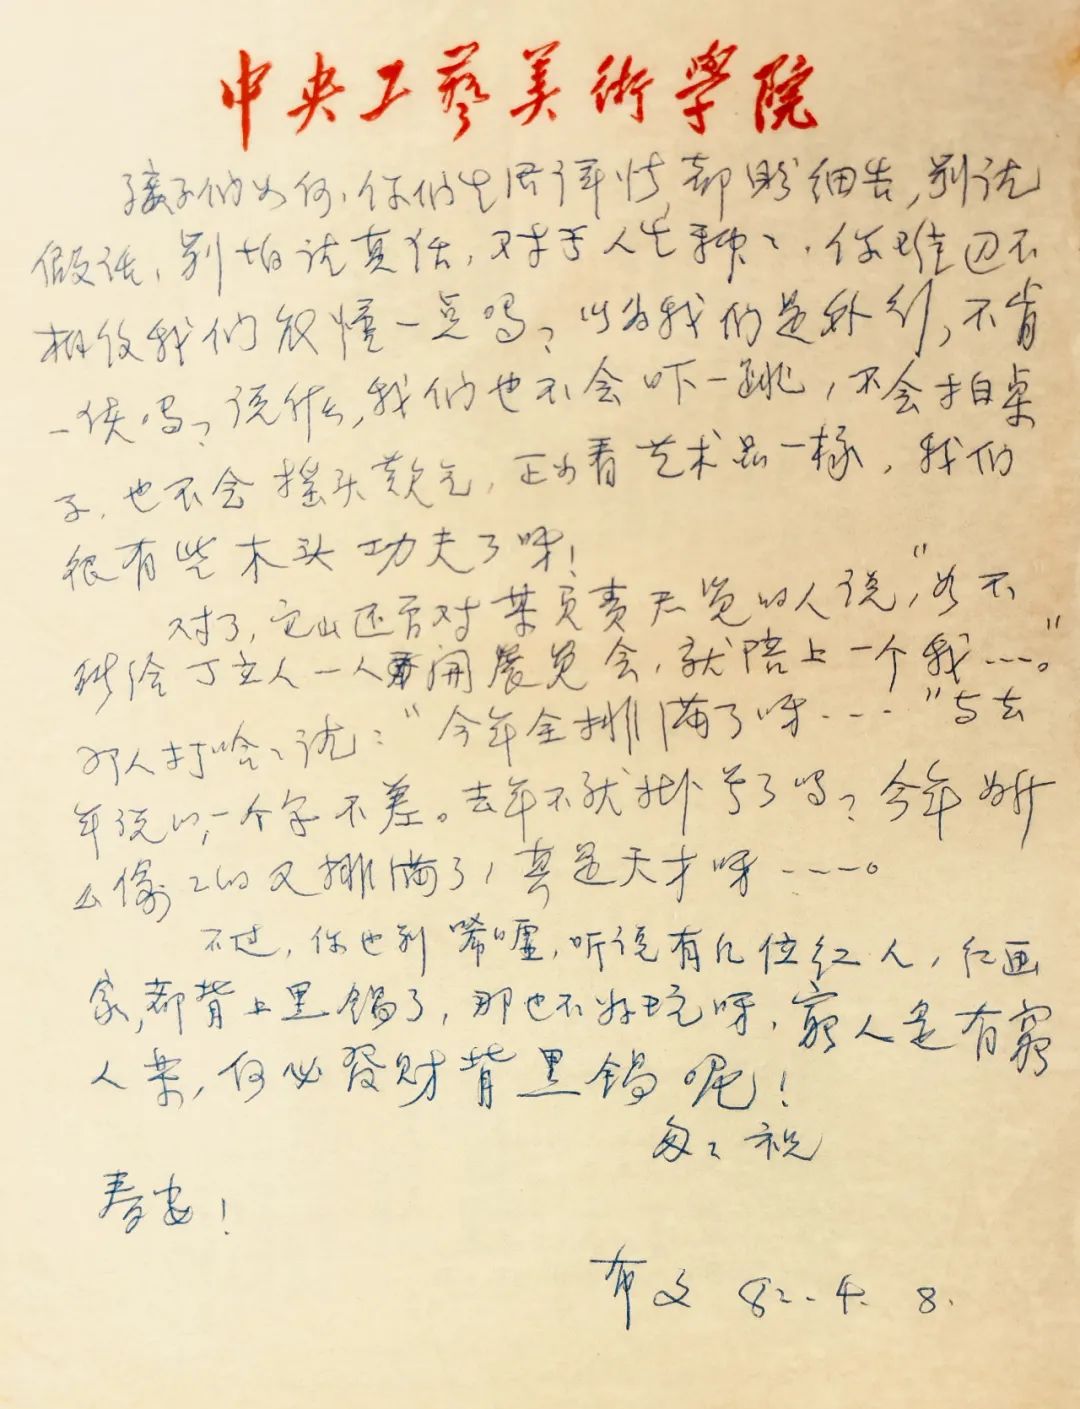 中央工藝美術學院
孩子们如何,你们生活详情,都盼细告,别说
假话,别怕说真话,对于人生种々,你难道不
相信我们能懂一点吗?以为我们是外行,不肯
一谈吗?说什么,我们也不会吓一跳,不会拍桌
子,也不会摇头叹气,正如看艺术品一様,我们
很有些木头功夫了呀!
对了,它山还曾对某负责展览的人说,“如不
能给丁立人一人開展览会,就陪上一个我……。”
那人打哈々说:“今年全排满了呀……”与去
年说的,一个字不差。去年不就挂号了吗?今年如什
么偷々的又排满了,真是天才呀……。
不过,你也别唏嘘,听说有几位红人,红画
家,都背上黑锅了,那也不好玩呀,窮人是有窮
人乐,何必發财背黑锅呢!
匆々祝
春安!
布文 82.4.8.